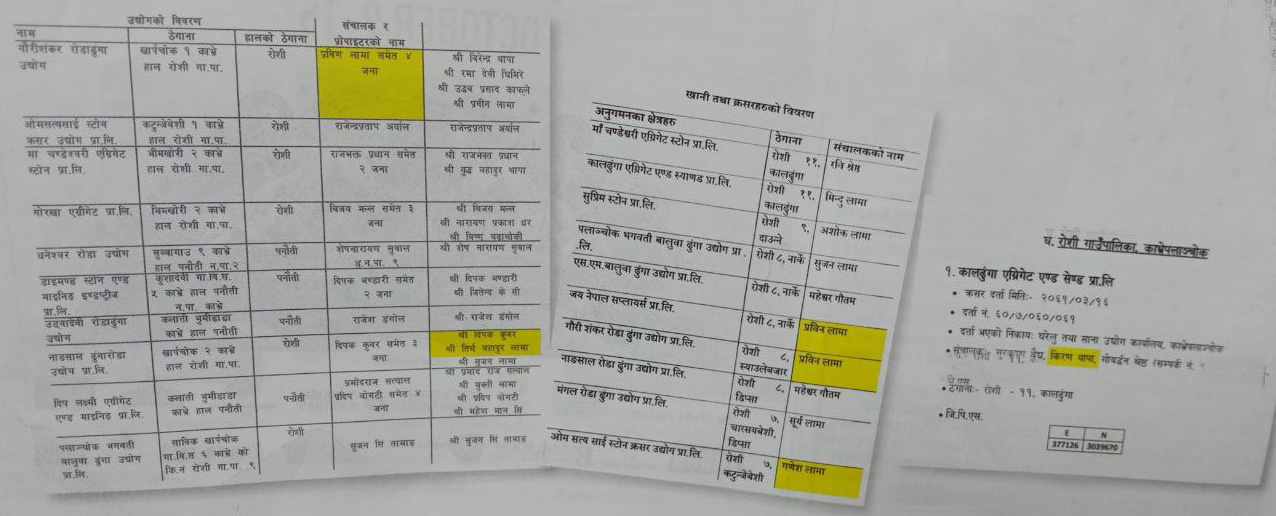 उद्योगको विवरण
संचालक र
नाम ठेगाना हालको ठेगाना प्रोपाइटरको नाम
गौरीशंकर रोडाढुंगा उद्योग
खार्पचोक १ काभ्रे
हाल रोशी गा.पा.
रोशी
प्रविण लामा समेत ४
जना
श्री विरेन्द्र थापा
श्री रमा देवी घिमिरे
श्री उद्धव प्रसाद काफ्ले
श्री प्रवीन लामा
ओमसत्यसाई स्टोन
क्रसर उद्योग प्रा.लि.
कटुन्जेबेशी १ काभ्रे
हाल रोशी गा.पा.
रोशी
राजेन्द्रप्रताप अर्याल
राजेन्द्रप्रताप अर्याल
मा चण्डेश्वरी एग्रिगेट
स्टोन प्रा.लि.
भीमखोरी २ काभ्रे
हाल रोशी गा.पा.
रोशी
राजभक्त प्रधान समेत
२ जना
श्री राजभक्त प्रधान
श्री युद्ध बहादुर थापा
गोरखा एग्रीगेट प्रा.लि.
भिमखोरी २ काभ्रे
हाल रोशी गा.पा.
रोशी
विजय मल्ल समेत ३
जना
श्री विजय मल्ल
श्री नारायण प्रकाश धर
श्री विष्णु
धनेश्वर रोडा उद्योग
सुब्बागाउ ९ काभ्रे
हाल पनौती न.पा.२
पनौती
शेषनारायण सुवाल
ध.न.पा. ९
श्री शेष नारायण सुवाल
डाइमण्ड स्टोन एण्ड
माइनिङ इण्डष्ट्रीज
प्रा.लि.
कुशादेवी गा.वि.स.
५ काभ्रे हाल पनौती
न.पा. काभ्रे
पनौती
दिपक भण्डारी समेत
२ जना
श्री दिपक भण्डारी
श्री जितेन्द्र के सी
उदयादेवी रोडाढुंगा
उद्योग
कलाती भुमीडाडा
काभ्रे हाल पनौती
पनौती
राजेश डंगोल
श्री राजेश डंगोल
नाडसाल ढुंगारोडा
उद्योग प्रा.लि.
खार्पचोक २ काभ्रे
हाल रोशी गा.पा.
रोशी
दिपक कुवर समेत ३
जना
श्री दिपक कुवर
श्री तिर्थ बहादुर लामा
श्री सुजन लामा
दिप लक्ष्मी एग्रीगेट
एण्ड माइनिङ प्रा.लि.
कलाती भुमीडाडा
काभ्रे हाल पनौती
पनौती
प्रमोदराज सत्याल
प्रदिप योगटी समेत ४
जना
श्री प्रमोद राज सत्याल
श्री मुक्ती लामा
श्री प्रदिप योगटी
श्री महेश मान सि
पलाञ्चोक भगवती
बालुवा ढुंगा उद्योग
प्रा.लि.
साविक खार्पचोक
गा.वि.स ६ काभ्रे को
कि.नं रोशी गा.पा. ९
रोशी
सुजन सि तामाङ
श्री सुजन सि तामाङ
खानी तथा क्रसरहरुको विवरण
अनुगमनका क्षेत्रहरु ठेगाना संचालकको नाम
माँ चण्डेश्वरी एग्रिगेट स्टोन प्रा.लि. रोशी ११, कालढुंगा रवि श्रेष्ठ
कालढुंगा एग्रिगेट एण्ड स्याण्ड प्रा.लि. रोशी ११, कालढुंगा मिन्दु लामा
सुप्रिम स्टोन प्रा.लि. रोशी ९, दाउन्ने अशोक लामा
पलाञ्चोक भगवती बालुवा ढुंगा उद्योग प्रा.लि. रोशी ८, नार्के सुजन लामा
एस.एम.बालुवा ढुंगा उद्योग प्रा.लि. रोशी ८, नार्के महेश्वर गौतम
जय नेपाल सप्लायर्स प्रा.लि. रोशी ८, नार्के प्रविन लामा
गौरी शंकर रोडा ढुंगा उद्योग प्रा.लि. रोशी ८, स्याउलेबजार प्रविन लामा
नाडसाल रोडा ढुंगा उद्योग प्रा.लि. रोशी ८, डिप्सा महेश्वर गौतम
मंगल रोडा ढुंगा उद्योग प्रा.लि. रोशी ७, चारसयबेशी, डिप्सा सूर्य लामा
ओम सत्य साई स्टोन क्रसर उद्योग प्रा.लि. रोशी ७, कटुन्जेबेशी गणेश लामा
घ. रोशी गाउँपालिका, काभ्रेपलाञ्चोक
१. कालढुंगा एग्रिगेट एण्ड सेण्ड प्रा.लि
• क्रसर दर्ता मितिः- २०६१/०३/१६
• दर्ता नं. ६०/७/०६०/०६१
• दर्ता भएको निकायः घरेलु तथा साना उद्योग कार्यालय, काभ्रेपलाञ्चोक
• संचालकः वैद्य, किरण थापा, गोवर्द्धन श्रेष्ठ (सम्पर्क नं.
• ठेगानाः- रोशी - ११. कालढुंगा
• जि.पि.एस.
E N
377126 3039670